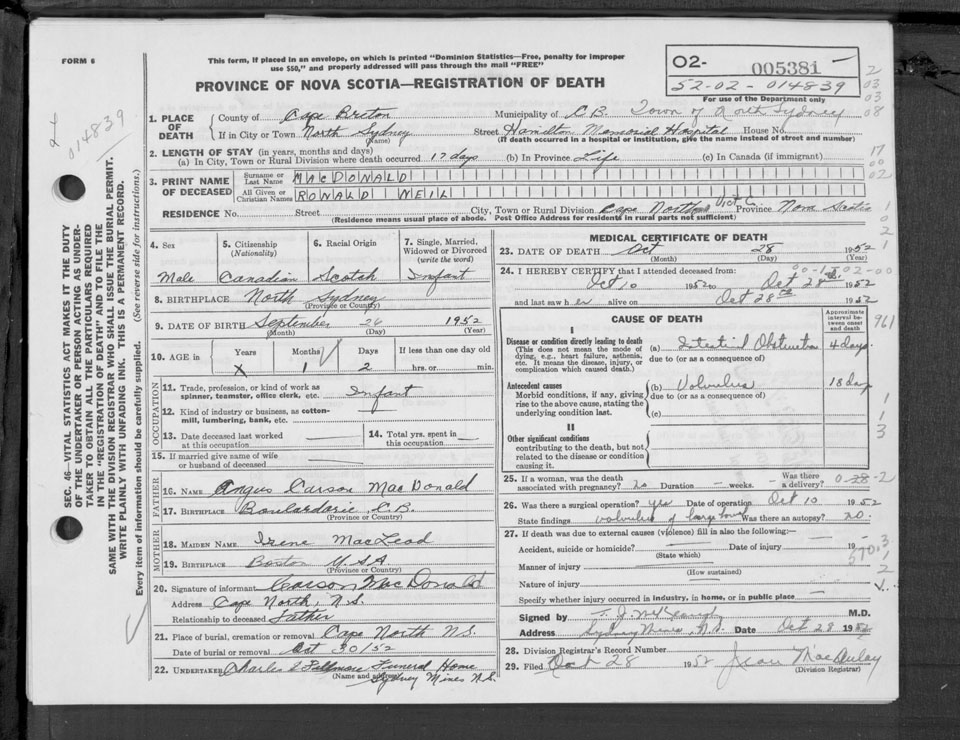 FORM 6
This form, if placed in an envelope, on which is printed "Dominion Statistics—Free, penalty for improper
use $50," and properly addressed will pass through the mail "FREE"
PROVINCE OF NOVA SCOTIA—REGISTRATION OF DEATH
02- 005381
52-02-014839
For use of the Department only
014839
SEC. 46- VITAL STATISTICS ACT MAKES IT THE DUTY
OF THE UNDERTAKER OR PERSON ACTING AS UNDER-
TAKER TO OBTAIN ALL THE PARTICULARS REQUIRED
IN THE "REGISTRATION OF DEATH" AND TO FILE THE
SAME WITH THE DIVISION REGISTRAR WHO SHALL ISSUE THE BURIAL PERMIT.
WRITE PLAINLY WITH UNFADING INK. THIS IS A PERMANENT RECORD.
Every item of information should be carefully supplied. (See reverse side for instructions.)
1. PLACE OF DEATH
County of Cape Breton Municipality of C.B. Town of North Sydney
If in City or Town North Sydney Street Hamilton Memorial Hospital House No.
(Name) (If death occurred in a hospital or institution, give the name instead of street and number)
2. LENGTH OF STAY (in years, months and days)
(a) In City, Town or Rural Division where death occurred 17 days (b) In Province Life (c) In Canada (if immigrant)
3. PRINT NAME OF DECEASED
Surname or Last Name MACDONALD
All Given or Christian Names RONALD NEIL
RESIDENCE No. Street City, Town or Rural Division Cape North Vict Co Province Nova Scotia
(Residence means usual place of abode. Post Office Address for residents in rural parts not sufficient)
4. Sex 5. Citizenship 6. Racial Origin 7. Single, Married,
(Nationality) Widowed or Divorced
(write the word)
Male Canadian Scotch Infant
8. BIRTHPLACE North Sydney
(Province or Country)
9. DATE OF BIRTH September 26 1952
(Month) (Day) (Year)
10. AGE in Years Months Days If less than one day old
X 1 2 hrs. or min.
OCCUPATION
11. Trade, profession, or kind of work as
spinner, teamster, office clerk, etc. Infant
12. Kind of industry or business, as cotton-
mill, lumbering, bank, etc.
13. Date deceased last worked
at this occupation
14. Total yrs. spent in
this occupation
15. If married give name of wife
or husband of deceased
FATHER
16. NAME Angus Carson MacDonald
17. BIRTHPLACE Boularderie C.B.
(Province or Country)
MOTHER
18. MAIDEN NAME Irene MacLeod
19. BIRTHPLACE Boston USA
(Province or Country)
20. Signature of informant Carson MacDonald
Address Cape North, N.S.
Relationship to deceased Father
21. Place of burial, cremation or removal Cape North N.S.
Date of burial or removal Oct 30/52
22. UNDERTAKER Charles Fillmore Funeral Home
(Name and address) Sydney Mines N.S.
MEDICAL CERTIFICATE OF DEATH
23. DATE OF DEATH Oct 28 1952
(Month) (Day) (Year)
24. I HEREBY CERTIFY that I attended deceased from:
Oct 10 1952 to Oct 28th 1952
and last saw h er alive on Oct 28th 1952
CAUSE OF DEATH
Approximate interval between onset and death
I
Disease or condition directly leading to death
(This does not mean the mode of
dying, e.g., heart failure, asthenia,
etc. It means the disease, injury, or
complication which caused death.)
(a) Intestinal Obstruction 4 days
due to (or as a consequence of)
Antecedent causes
Morbid conditions, if any, giving
rise to the above cause, stating the
underlying condition last.
(b) Volvulus 18 days
due to (or as a consequence of)
(c)
II
Other significant conditions
contributing to the death, but not
related to the disease or condition
causing it.
25. If a woman, was the death
associated with pregnancy? no Duration weeks. Was there a delivery?
26. Was there a surgical operation? yes Date of operation Oct 10 1952
State findings volvulus of large bowel Was there an autopsy? no.
27. If death was due to external causes (violence) fill in also the following:—
Accident, suicide or homicide? Date of injury 19
(State which)
Manner of injury
(How sustained)
Nature of injury
Specify whether injury occurred in industry, in home, or in public place
Signed by M.D.
Address Sydney Mines, N.S. Date Oct 28 1952
28. Division Registrar's Record Number
29. Filed Oct 28 1952 Jean MacAulay
(Division Registrar)